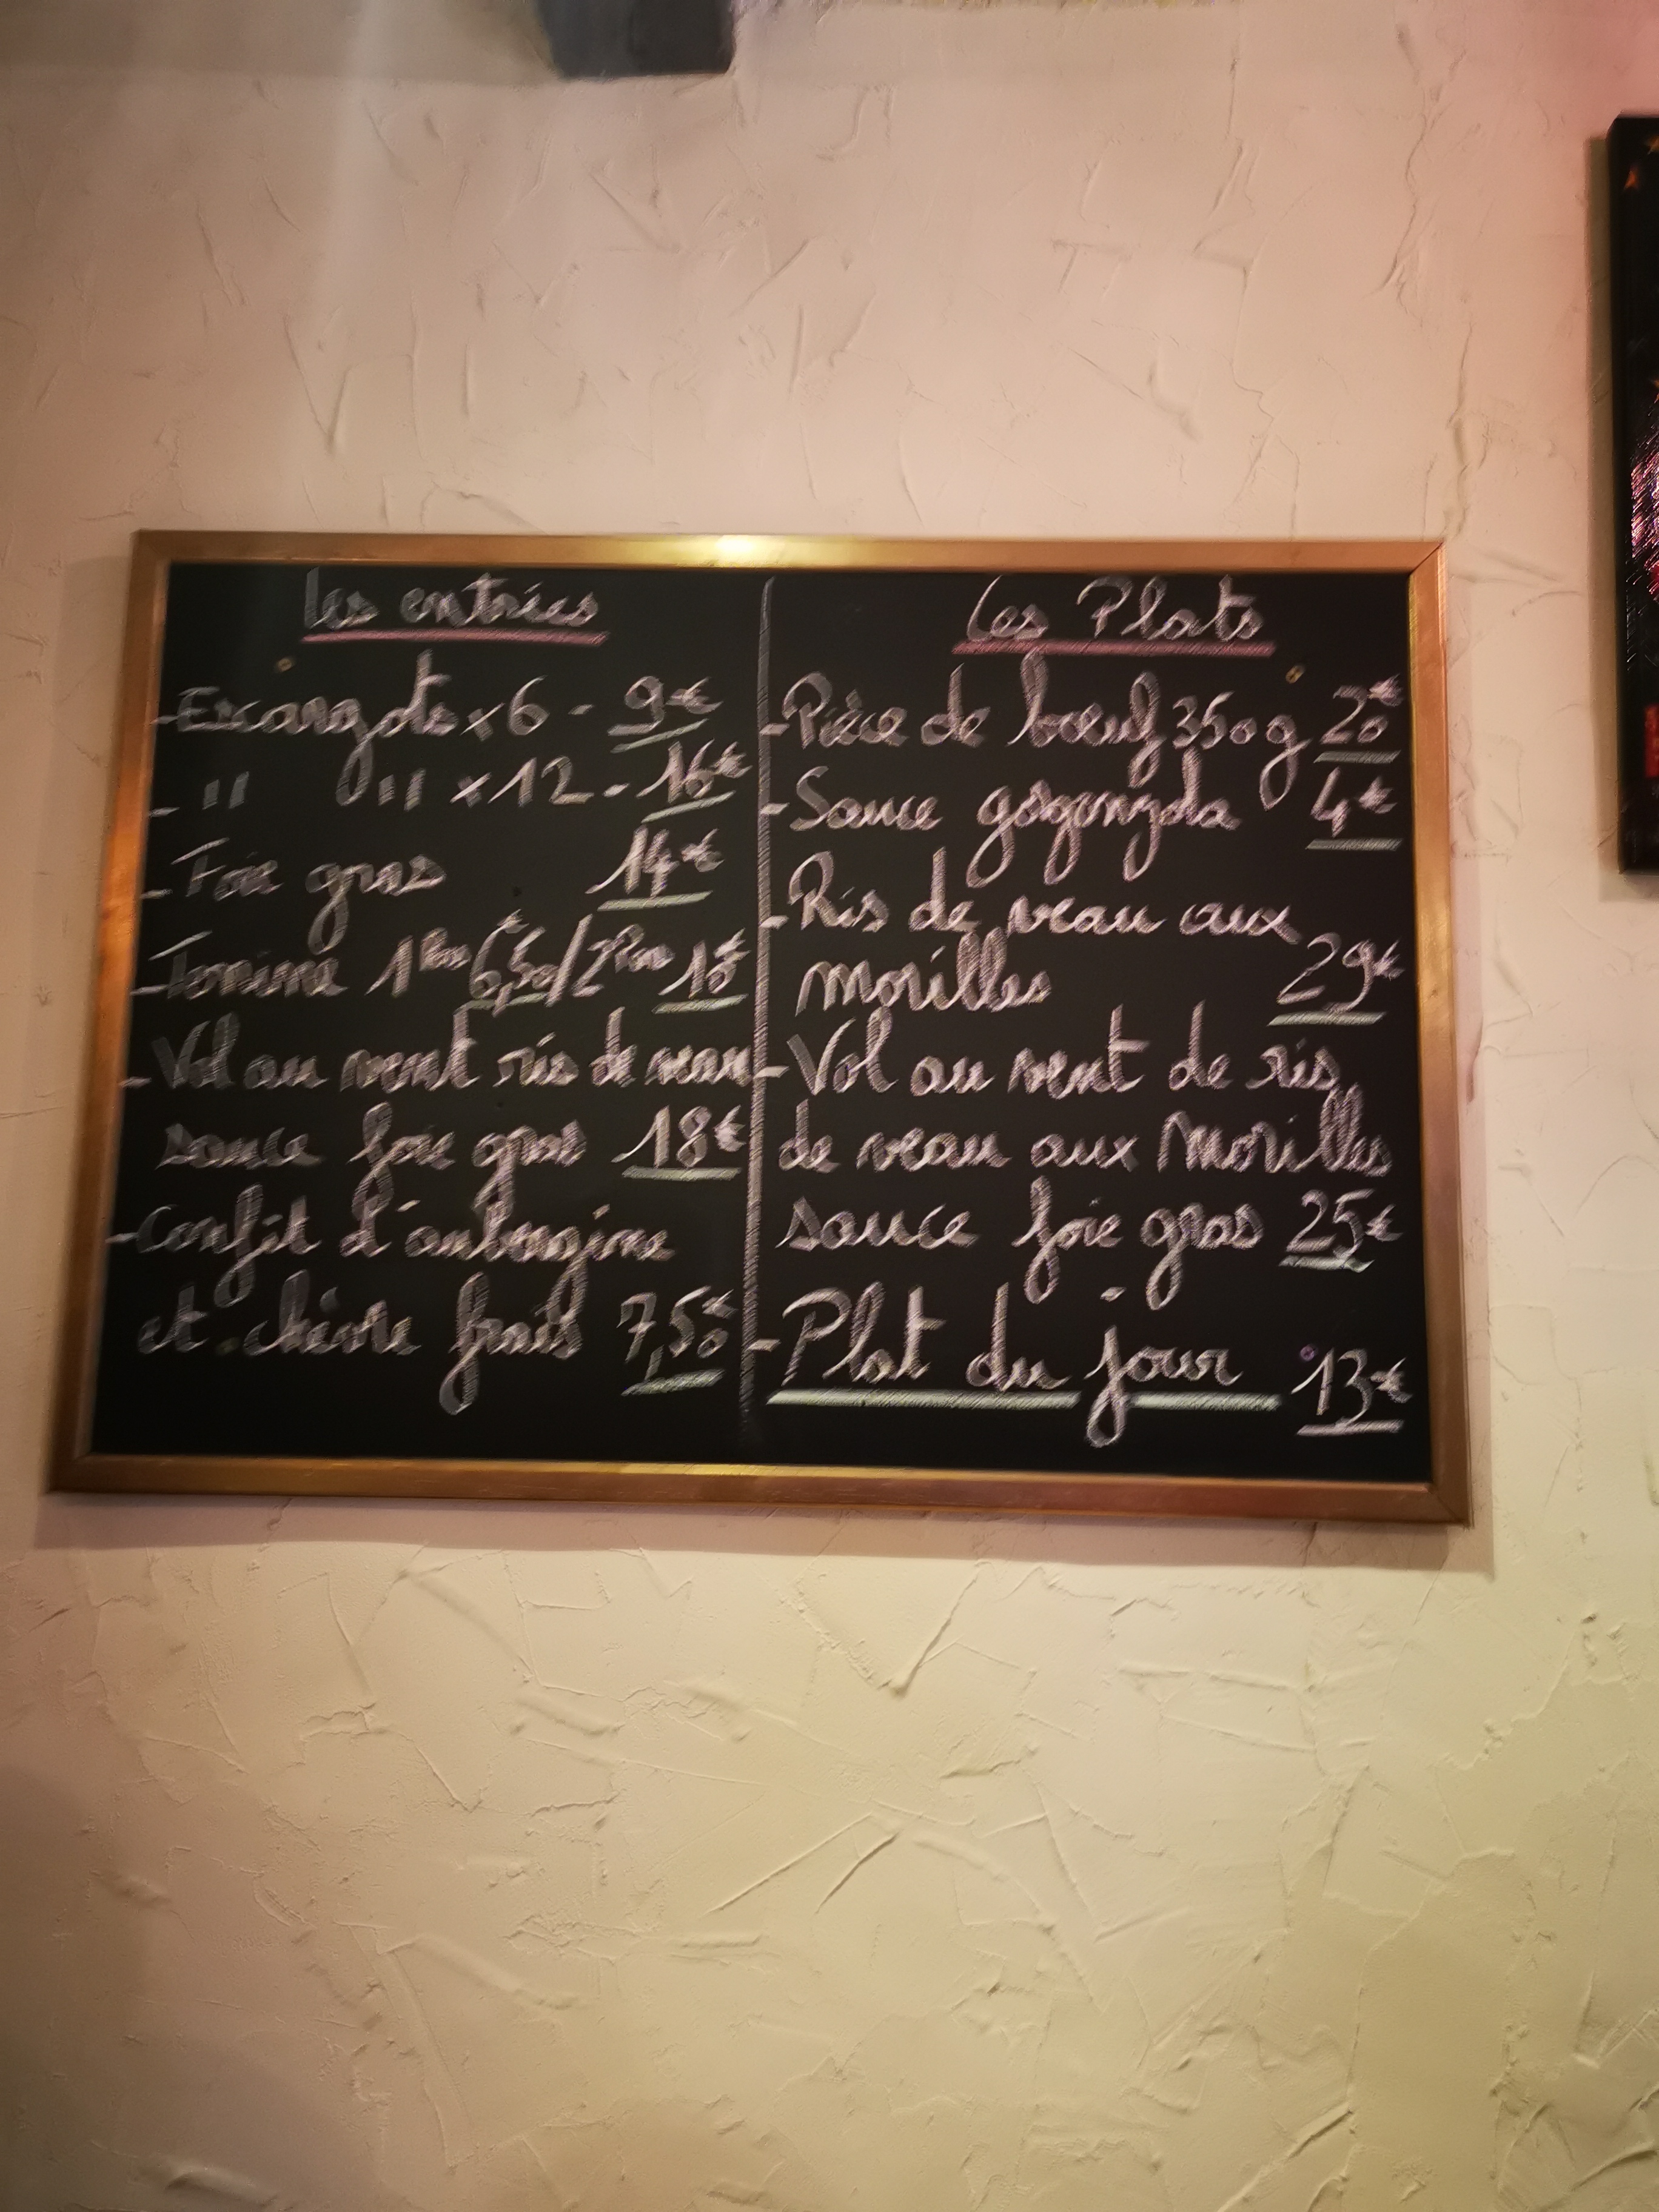 Les entrées
-Escargots x6 - 9€
- " " x12 - 16€
- Foie gras 14€
-Terrine 1Pers 6,50€/2Pers 10€
-Vol au vent ris de veau
sauce foie gras 18€
-Confit d'aubergine
et chèvre frais 7,50€
Les Plats
-Pièce de bœuf 350g 20€
-Sauce gorgonzola 4€
-Ris de veau aux
morilles 29€
-Vol au vent de ris
de veau aux Morilles
sauce foie gras 25€
-Plat du jour 13€